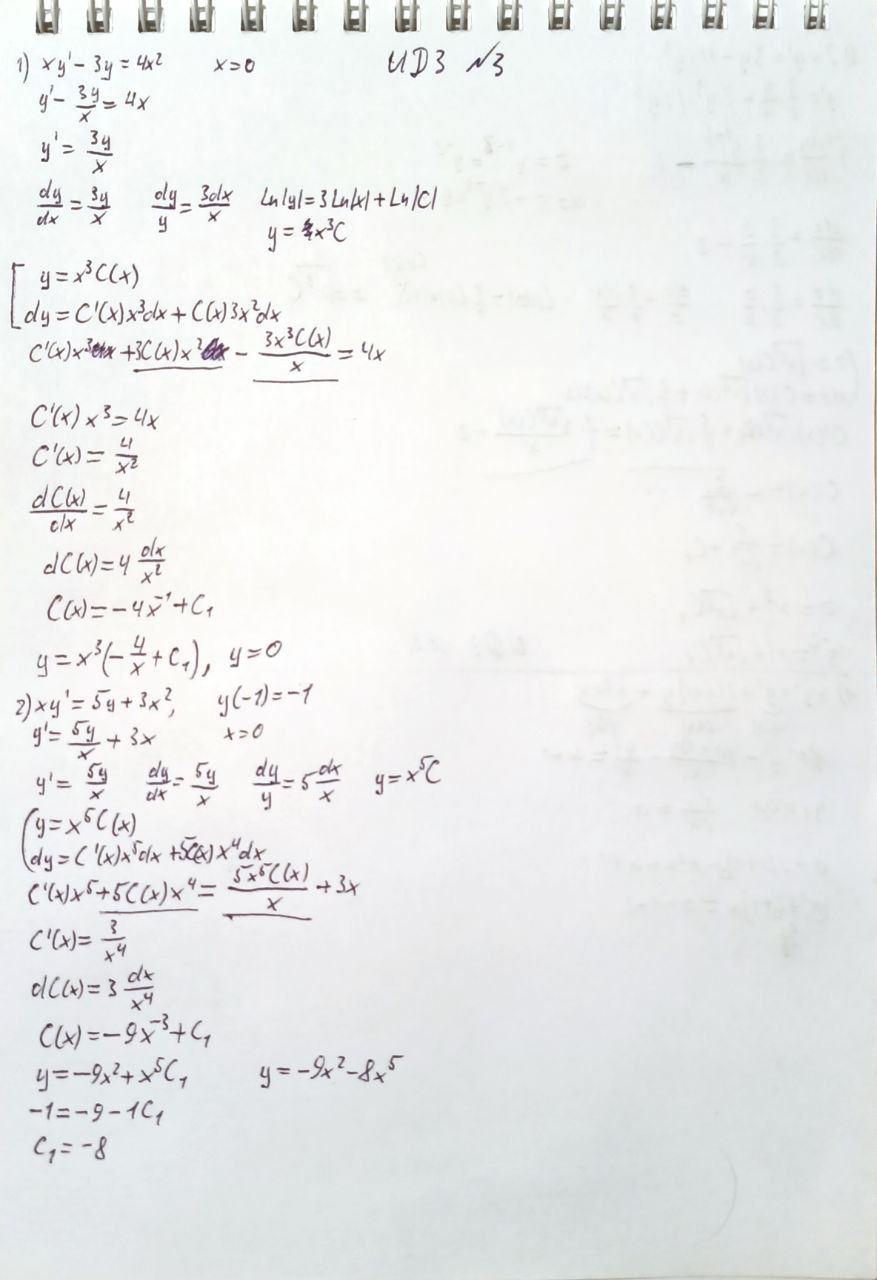 1) xy' - 3y = 4x² x=0 ИДЗ №3
y' - 3y/x = 4x
y' = 3y/x
dy/dx = 3y/x dy/y = 3dx/x Ln|y| = 3Ln|x| + Ln|C|
y = x³C
[ y = x³C(x)
dy = C'(x)x³dx + C(x)3x²dx
C'(x)x³ + 3C(x)x² - 3x³C(x)/x = 4x
C'(x)x³ = 4x
C'(x) = 4/x²
dC(x)/dx = 4/x²
dC(x) = 4 dx/x²
C(x) = -4x⁻¹ + C₁
y = x³(-4/x + C₁), y=0
2) xy' = 5y + 3x², y(-1) = -1
y' = 5y/x + 3x x=0
y' = 5y/x dy/dx = 5y/x dy/y = 5 dx/x y = x⁵C
( y = x⁵C(x)
dy = C'(x)x⁵dx + 5C(x)x⁴dx
C'(x)x⁵ + 5C(x)x⁴ = 5x⁵C(x)/x + 3x
C'(x) = 3/x⁴
dC(x) = 3 dx/x⁴
C(x) = -9x⁻³ + C₁
y = -9x² + x⁵C₁ y = -9x² - 8x⁵
-1 = -9 - 1C₁
C₁ = -8